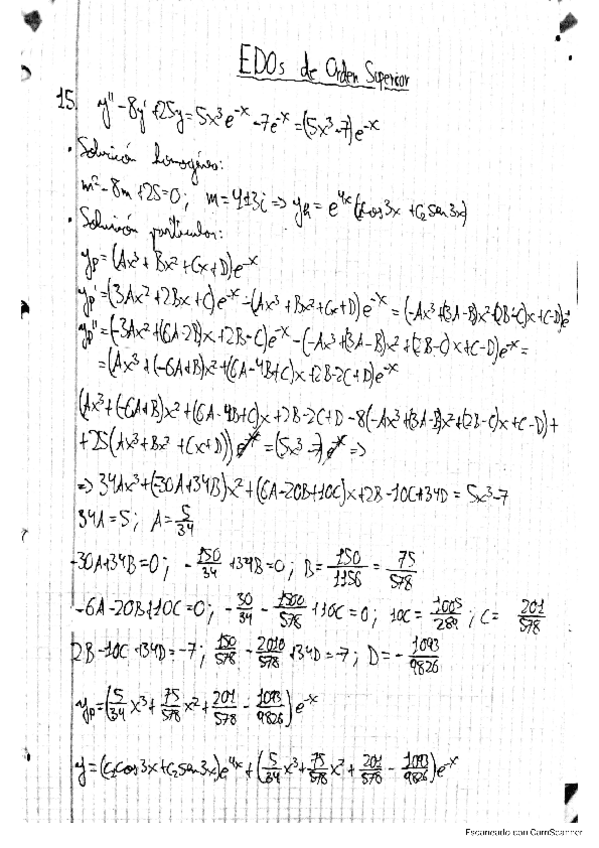 EDOs de Orden Superior
15. y'' - 8y' + 25y = 5x³e^-x - 7e^-x = (5x³-7)e^-x
• Solución homogénea:
m² - 8m + 25 = 0; m = 4±3i => yh = e^4x (c₁cos3x + c₂sen3x)
• Solución particular:
yp = (Ax³ + Bx² + Cx + D)e^-x
yp' = (3Ax² + 2Bx + C)e^-x - (Ax³ + Bx² + Cx + D)e^-x = (-Ax³ + (3A-B)x² + (2B-C)x + C-D)e^-x
yp'' = (-3Ax² + (6A-2B)x + 2B-C)e^-x - (-Ax³ + (3A-B)x² + (2B-C)x + C-D)e^-x =
= (Ax³ + (-6A+B)x² + (6A-4B+C)x + 2B-2C+D)e^-x
(Ax³ + (-6A+B)x² + (6A-4B+C)x + 2B-2C+D - 8(-Ax³ + (3A-B)x² + (2B-C)x + C-D) +
+ 25(Ax³ + Bx² + Cx + D)) e^-x = (5x³-7) e^-x =>
=> 34Ax³ + (-30A+34B)x² + (6A-20B+10C)x + 2B-10C+34D = 5x³-7
34A = 5; A = 5/34
-30A+34B = 0; -150/34 + 34B = 0; B = 150/1156 = 75/578
-6A-20B+10C = 0; -30/34 - 1500/578 + 10C = 0; 10C = 1005/289; C = 201/578
2B-10C+34D = -7; 150/578 - 2010/578 + 34D = -7; D = -1093/9826
yp = (5/34 x³ + 75/578 x² + 201/578 - 1093/9826) e^-x
y = (c₁cos3x + c₂sen3x)e^4x + (5/34 x³ + 75/578 x² + 201/578 - 1093/9826)e^-x
Escaneado con CamScanner